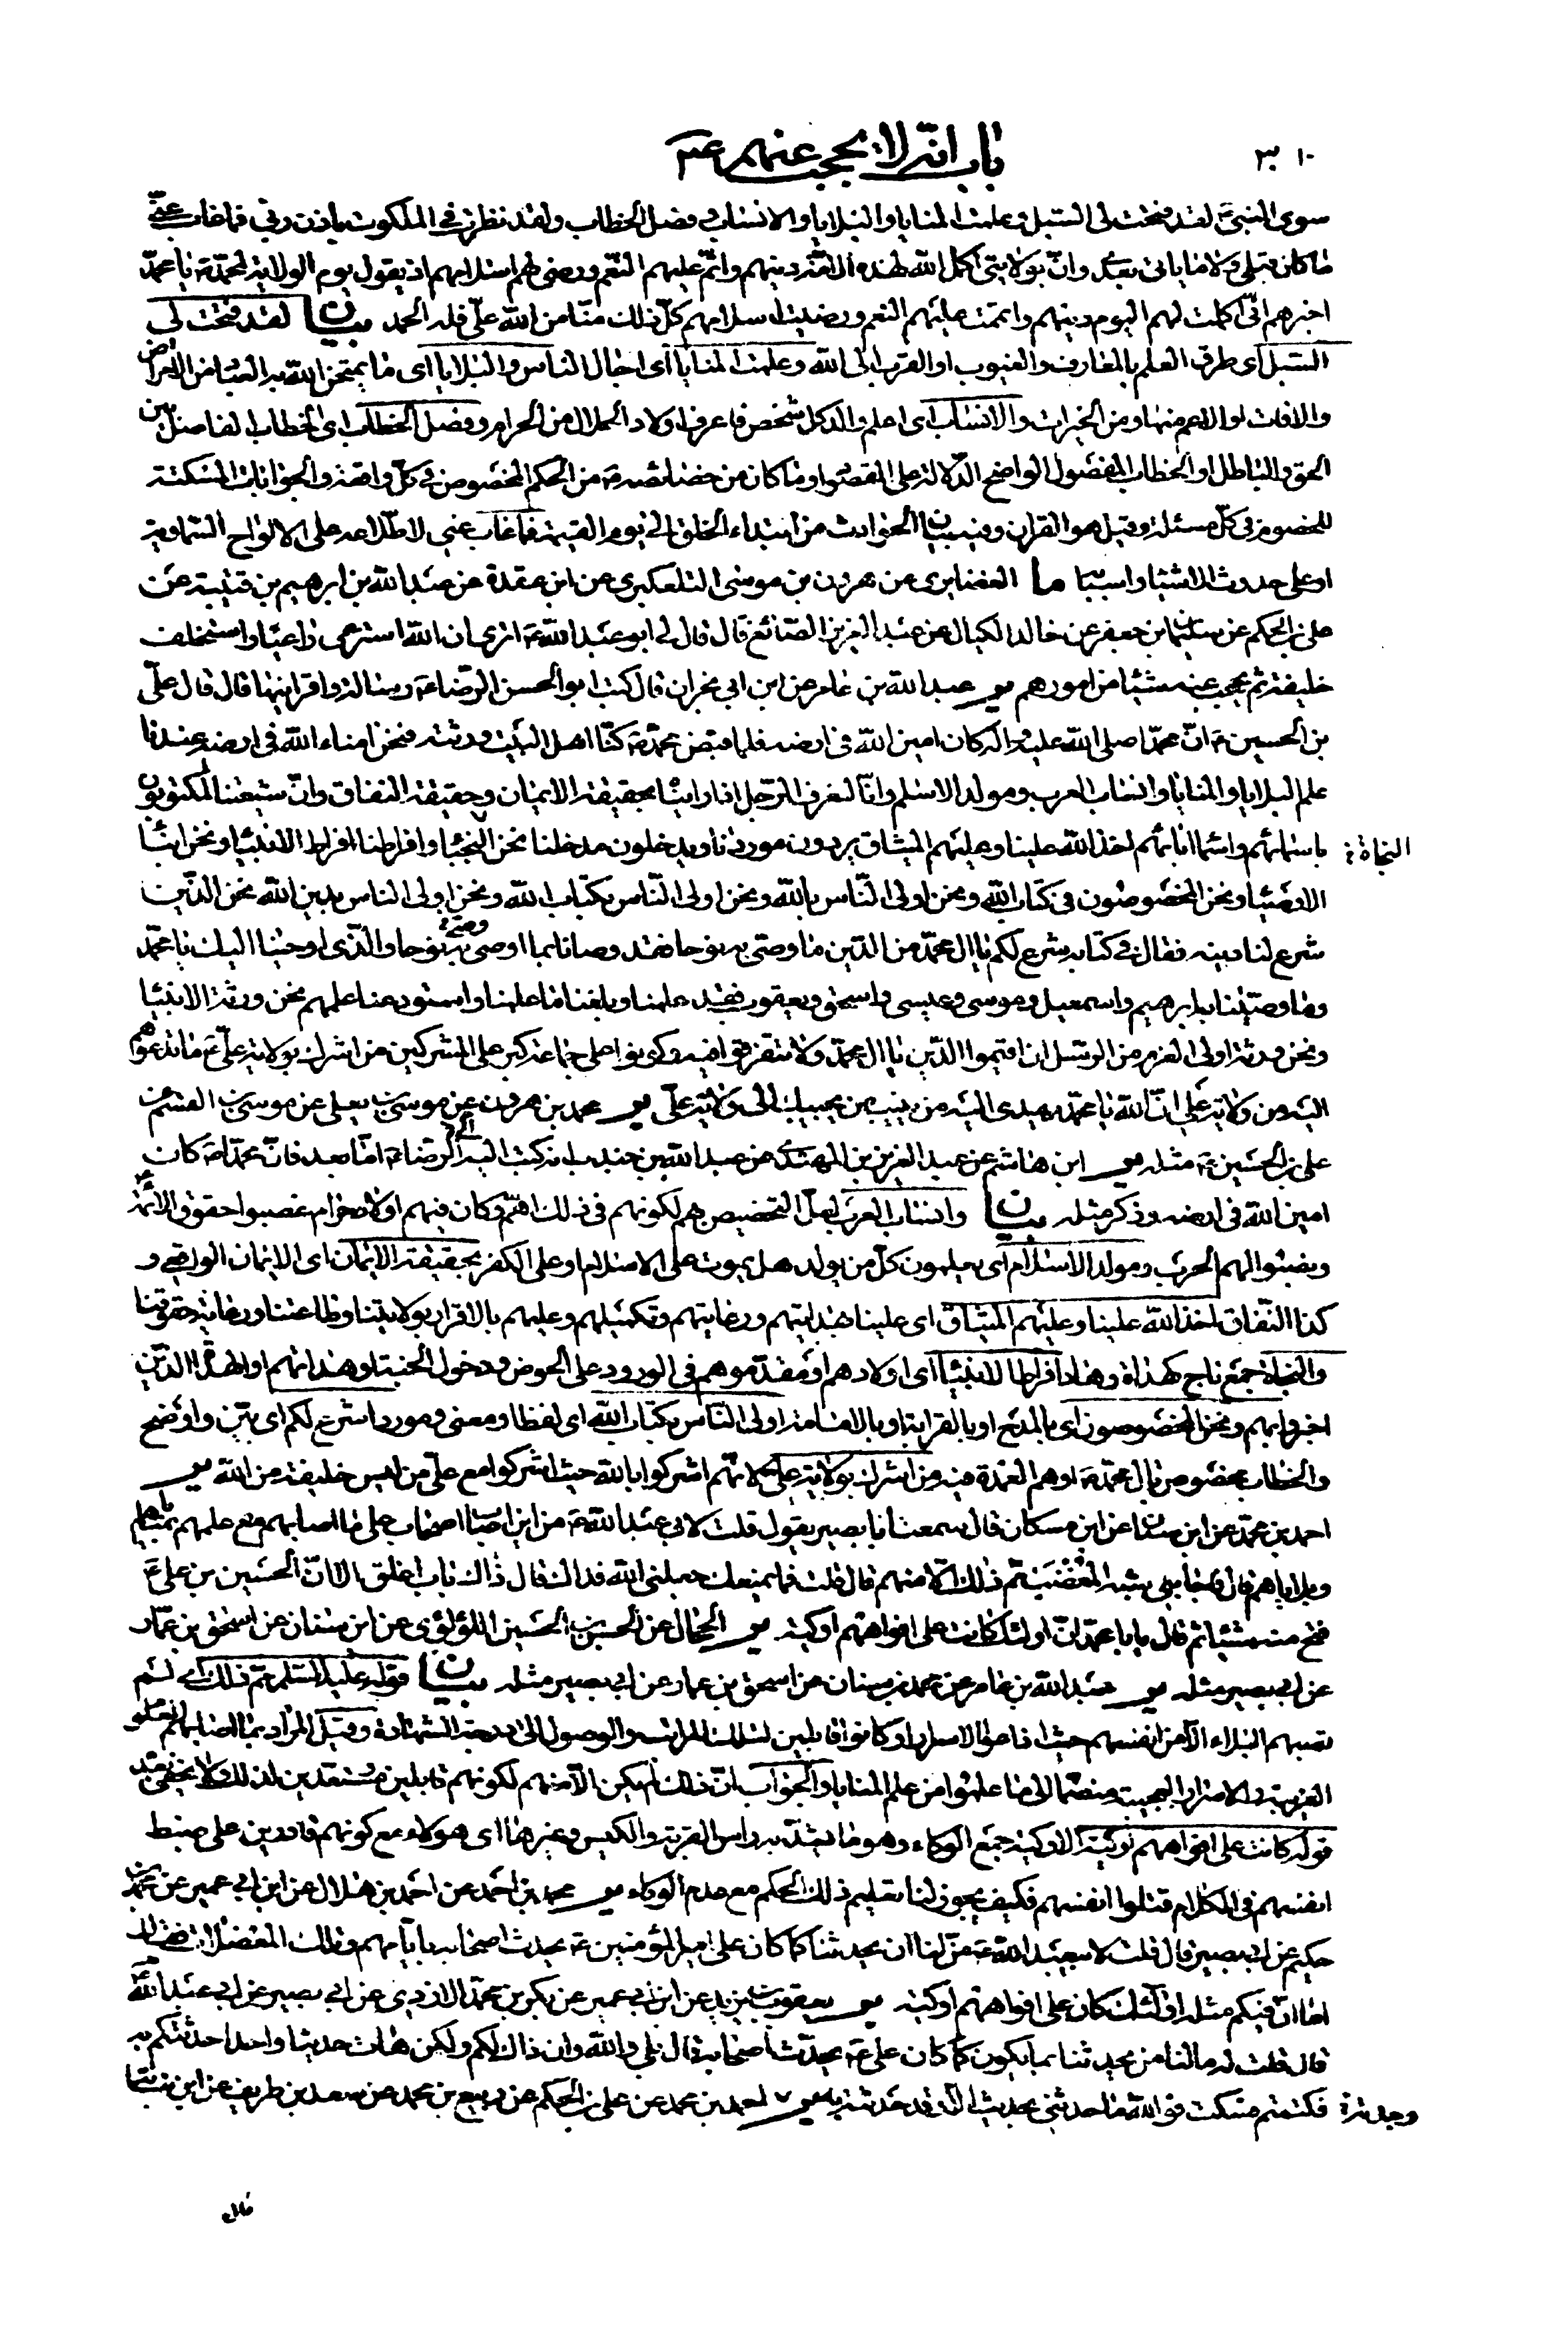 ٣١٠
باب انّه لا يحجب عنهم ع
سوى النبيّ ص لقد فتحت لى السبل و علمت المنايا و البلايا و الانساب و فصل الخطاب و لقد نظرت فى الملكوت باذن ربّى فما غاب عنّى
ما كان قبلى و لا ما ياتى بعدى و انّ بولايتى اكمل اللّه لهذه الامّة دينهم و اتمّ عليهم النعم و رضى لهم اسلامهم اذ يقول يوم الولاية لمحمّد ص يا محمّد
اخبرهم انّى اكملت لهم اليوم دينهم و اتممت عليهم النعم و رضيت اسلامهم كلّ ذلك منّا من اللّه علىّ فله الحمد بيان لقد فتحت لى
السبل اى طرق العلم بالمعارف و الغيوب او القرب الى اللّه و علمت المنايا اى اجال الناس و البلايا اى ما يمتحن اللّه به العباد من الامراض
و الافات او الاعم منها و من الخيرات و الانساب اى اعلم والد كل شخص فاعرف اولاد الحلال من الحرام و فصل الخطاب اى الخطاب الفاصل بين
الحق و الباطل او الخطاب المفصول الواضح الدّلالة على المقصود او ما كان من خصائصه ص من الحكم المخصوص فى كلّ واقعة و الجوابات المسكتة
للخصوم فى كلّ مسئلة و قيل هو القران و فيه بيان الحوادث من ابتداء الخلق الى يوم القيمة فما غاب عنى لاطّلاعه على الالواح السماوية
او على حدوث الاشياء و اسبابها ما الغضايرى عن هرون بن موسى التلعكبرى عن ابن عقدة عن عبد اللّه بن ابرهيم بن قتيبة عن
على بن الحكم عن سليمان بن جعفر عن خالد الكيال عن عبد العزيز الصّائغ قال قال لى ابو عبد اللّه ع اترى ان اللّه استرعى راعيا و استخلف
خليفة ثم يحجب عنه شيئا من امورهم ير عبد اللّه بن عامر عن ابن ابى نجران قال كتب ابو الحسن الرضا ع رسالة و اقرانيها قال قال علىّ
بن الحسين ع انّ محمّدا صلى اللّه عليه و اله كان امين اللّه فى ارضه فلما قبض محمّد ص كنّا اهل البيت ورثته فنحن امناء اللّه فى ارضه عندنا
علم البلايا و المنايا و انساب العرب و مولد الاسلم و انّا لنعرف الرّجل اذا رايناه بحقيقة الايمان و حقيقة النفاق و انّ شيعتنا لمكتوبون
باسمائهم و اسماء ابائهم اخذ اللّه علينا و عليهم الميثاق يردون موردنا و يدخلون مدخلنا نحن النجباء و افراطنا افراط الانبياء و نحن ابناء
النجاة خ
الاوصياء و نحن المخصوصون فى كتاب اللّه و نحن اولى النّاس باللّه و نحن اولى النّاس بكتاب اللّه و نحن اولى الناس بدين اللّه نحن الذّين
شرع لنا دينه فقال فى كتابه شرع لكم يا ال محمّد من الدّين ما وصّى به نوحا فقد وصانا بما اوصى به نوحا و الذّى اوحينا اليك يا محمّد
و ما وصّينا به ابرهيم و اسمعيل و موسى و عيسى و اسحق و يعقوب فقد علمنا و بلغنا ما علمنا و استودعنا علمهم نحن ورثة الانبياء
و نحن ورثة اولى العزم من الرّسل ان اقيموا الدّين يا ال محمّد و لا تتفرقوا فيه و كونوا على جماعة كبر على المشركين من اشرك بولاية علىّ ع ما تدعوهم
اليه من ولاية على انّ اللّه يا محمّد يهدى اليه من ينيب من يجيبك الى ولاية علىّ ير محمد بن هرون عن موسى بن يعلى عن موسى بن القسم عن
على بن الحسين ع مثله ير ابن هاشم عن عبد العزيز بن المهتدى عن عبد اللّه بن جندب انه كتب اليه الرضا ع امّا بعد فانّ محمّدا ص كان
امين اللّه فى ارضه و ذكر مثله بيان و انساب العرب لعلّ التخصيص بهم لكونهم فى ذلك اهمّ و كان فيهم اولاد حرام غصبوا حقوق الائمّة
و نصبوا لهم الحرب و مولد الاسلام اى يعلمون كلّ من يولد هل يموت على الاسلام او على الكفر بحقيقة الايمان اى الايمان الواقعى و
كذا النّفاق اخذ اللّه علينا و عليهم الميثاق اى علينا بهدايتهم و رعايتهم و تكميلهم و عليهم بالاقرار بولايتنا و طاعتنا و رعاية حقوقنا
و النجاة جمع ناج كهداة و هاد افراط الانبياء اى اولادهم او مقدّموهم فى الورود على الحوض و دخول الجنة او هداتهم او الهداة الذّين
اخبروا بهم و نحن المخصوصون اى بالمدح او بالقرابة او بالامامة اولى النّاس بكتاب اللّه اى لفظا و معنى و موردا شرع لكم اى بيّن و اوضح
و الخطاب مخصوص بال محمّد ص او هم العمدة فيه من اشرك بولاية على لانهّم اشركوا باللّه حيث اشركوا مع علىّ من ليس خليفة من اللّه ير
احمد بن محمّد عن ابن سنان عن ابن مسكان قال سمعت ابا بصير يقول قلت لابى عبد اللّه ع من اين اصاب اصحاب على ما اصابهم مع علمهم بمناياهم
و بلاياهم قال فاجابنى شبه المغضب ممّ ذلك الا منهم قال قلت فما يمنعك جعلنى اللّه فداك قال ذاك باب اغلق الا انّ الحسين بن على ع
فتح منه شيئا ثم قال يا با محمّد انّ اولئك كانت على افواههم اوكية ير الحجال عن الحسين بن الحسين اللؤلؤى عن ابن سنان عن اسحق بن عمّار
عن ابى بصير مثله ير عبد اللّه بن عامر عن محمد بن سنان عن اسحق بن عمار عن ابى بصير مثله بيان قوله عليه السّلم ممّ ذلك اى لم
تصبهم البلاء الّا من انفسهم حيث اذاعوا الاسرار او كانوا قابلين لتلك المراتب و الوصول الى درجة الشهادة و قيل المراد بما اصابهم العلوم
الغريبة و الاسرار العجيبة منضمّا الى ما علموا من علم المنايا و الجواب انّ ذلك لم يكن الّا منهم لكونهم قابلين مستعدين لذلك و لا يخفى بعده
قوله كانت على افواههم اوكية الاوكية جمع الوكاء و هو ما يشدّ به راس القربة و الكيس و غيرهما اى هؤلاء مع كونهم قادرين على ضبط
انفسهم فى الكلام قتلوا انفسهم فكيف يجوز لنا تعليم ذلك لكم مع عدم الوكاء ير محمد بن احمد عن احمد بن هلال عن ابن ابى عمير عن محمّد بن
حكيم عن ابى بصير قال قلت لابيعبد اللّه ع من لنا ان يحدثنا كما كان على امير المؤمنين ع يحدث اصحابه باياتهم و تلك المعضلات فقال
اما انّ فيكم مثله اولئك كان على افواههم اوكية ير يعقوب بن يزيد عن ابن ابى عمير عن بكر بن محمّد الازدى عن ابى بصير عن ابى عبد اللّه ع
قال قلت له ما لنا من يحدثنا بما يكون كما كان على ع يحدّث اصحابه قال بلى و اللّه و ان ذاك لكم و لكن هات حديثا واحدا حدثتكم به
فكتمتم فسكت فو اللّه ما حدثنى بحديث الّا و قد حدثته به ير احمد بن محمد عن على بن الحكم عن ربيع بن محمد عن سعد بن طريف عن ابن نباتة
وجدته خ
قال